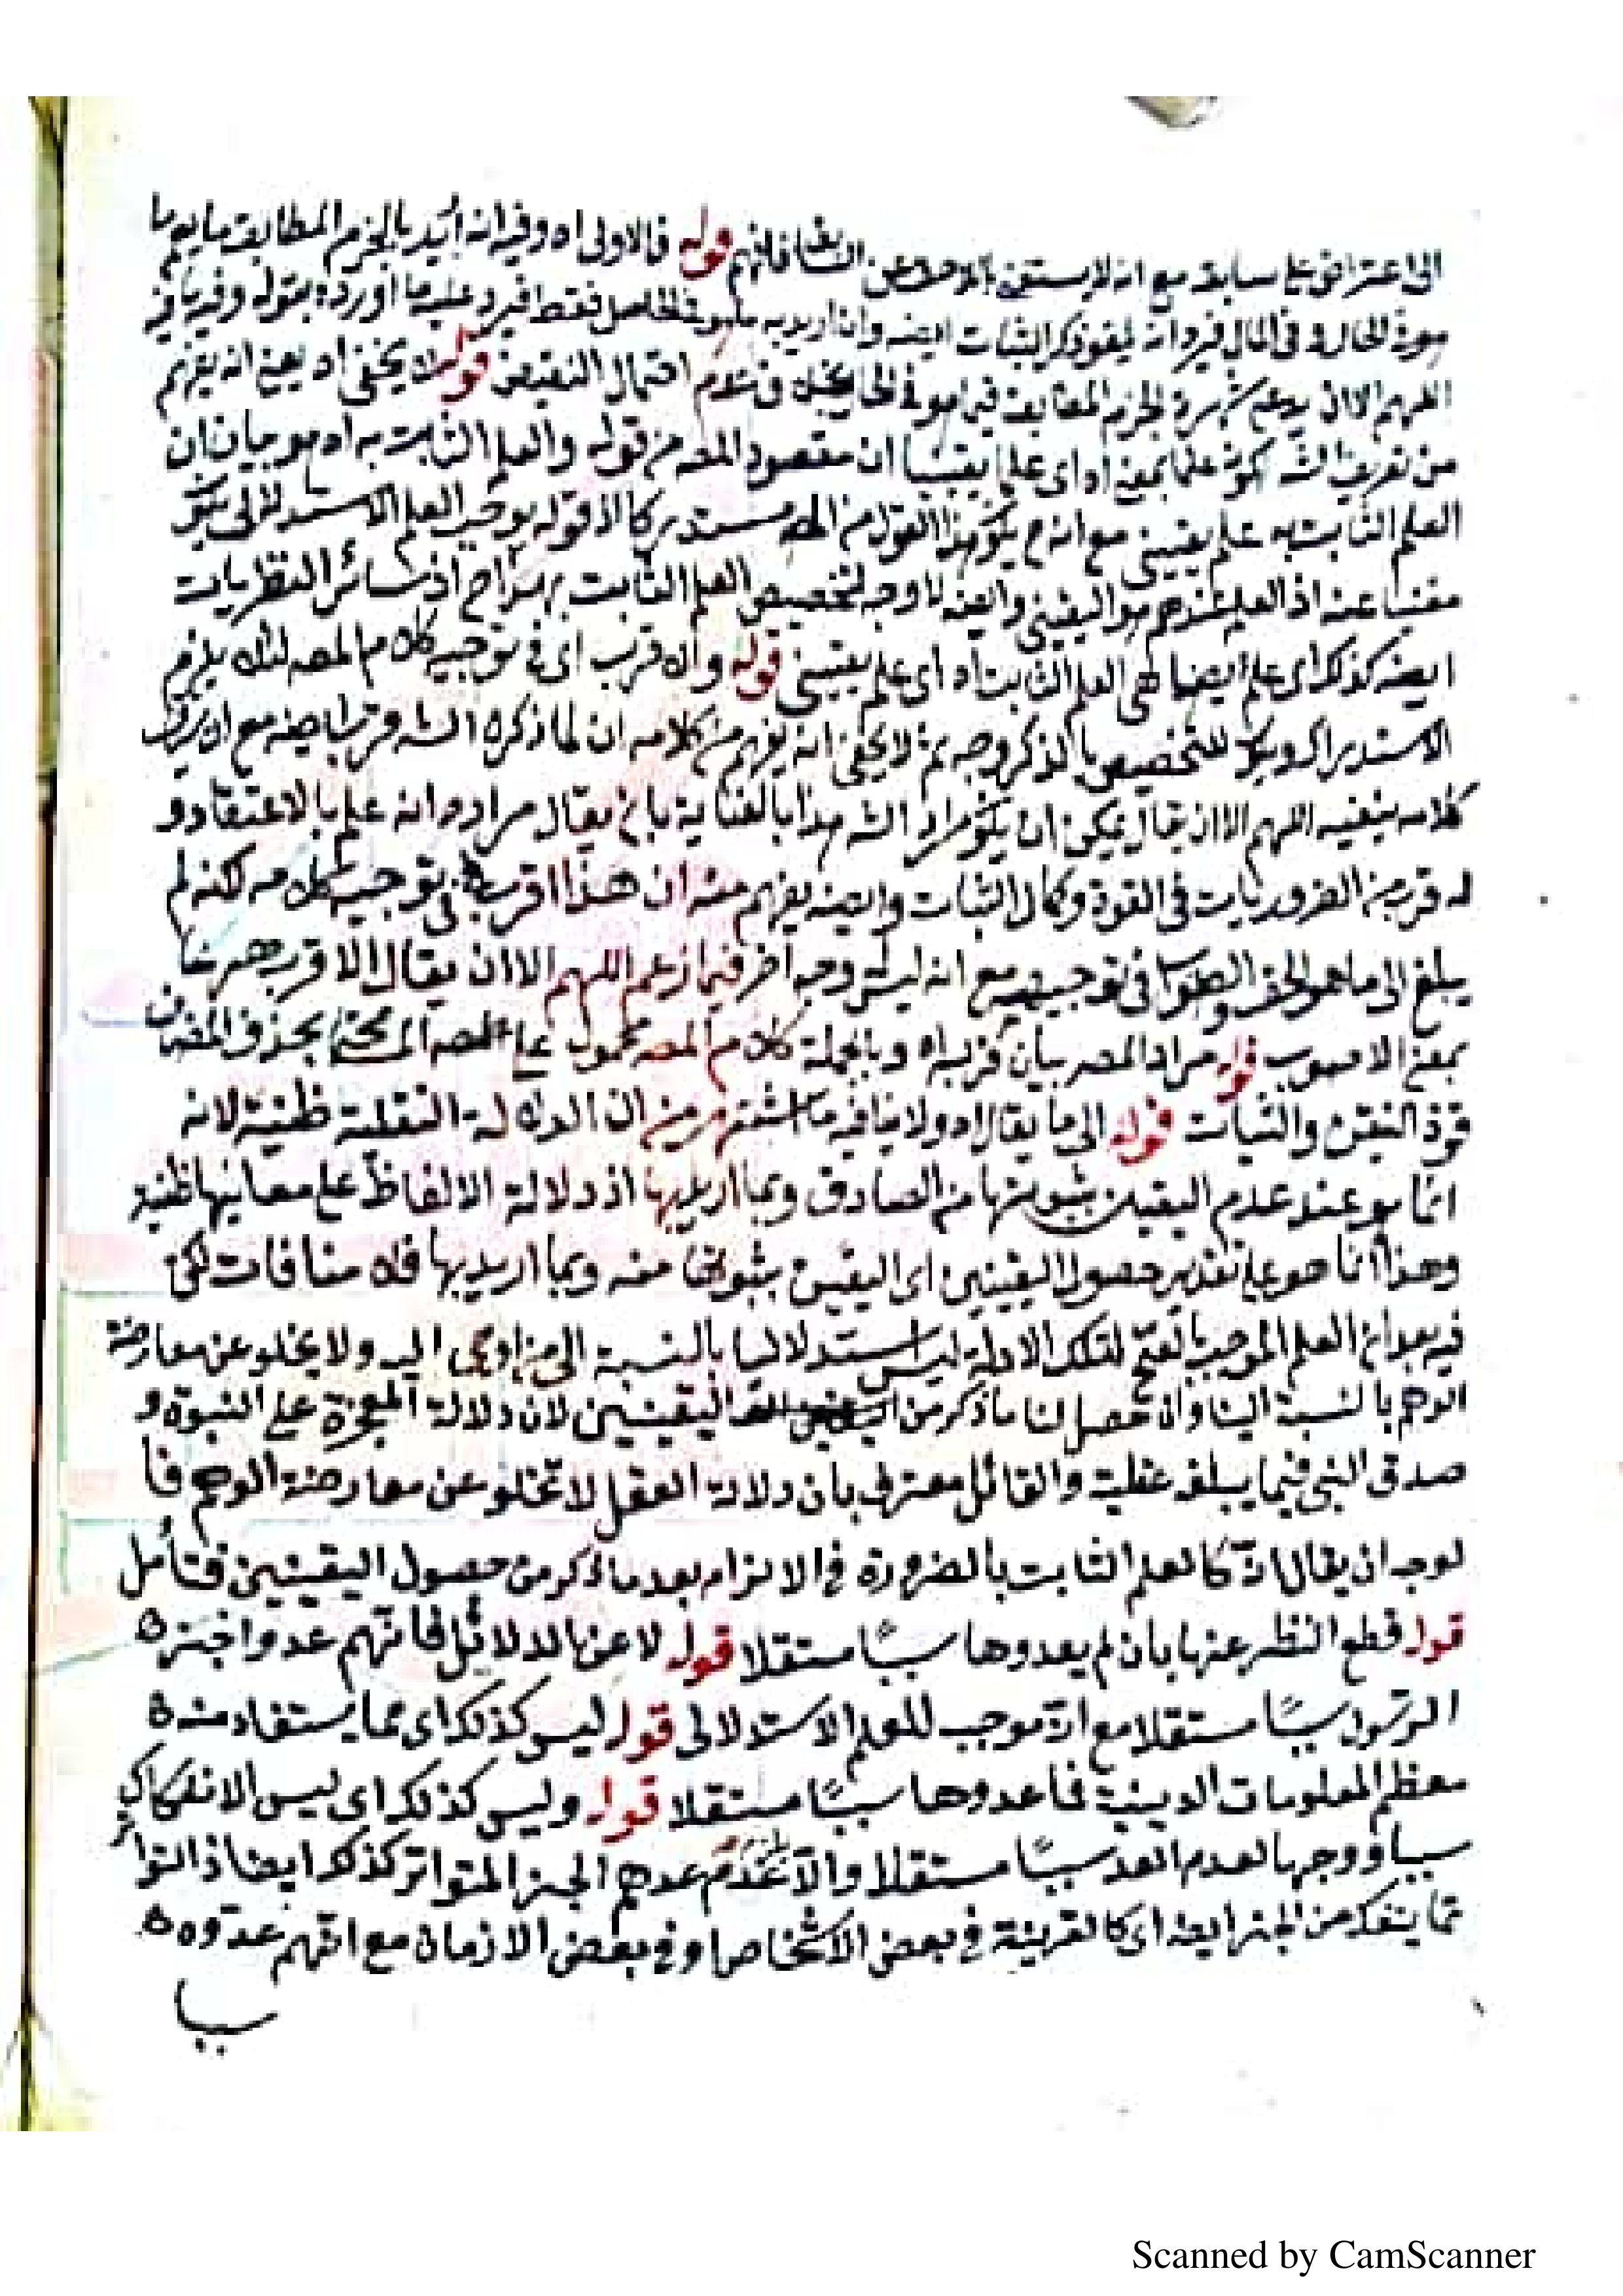 الى اعتراض على سابقه مع انه لا يستغنى بالاحق عن السابق فافهم قوله فالاولى اه وفيه انه ان اريد بالجزم المطابقة ما يعم ما
هو في الحال و في المال فيرد انه يلغو ذكر الثبات ايضه وان اريد به ما هو في الحاصل فقط فيرد عليه ما اورده بقوله وفيه ما فيه
اللهم الا ان يدعى شهرة الجزم المطابق فيما هو في الحال فى عدم احتمال النقيض قوله لا يخفى اه يعنى انه يفهم
من تعريف الشه كونه علما بمعنى اه اى علما يقينيا ان مقصود المصه من قوله والعلم الثابت به اه هو بيان ان
العلم الثابت به علم يقيني مع انه ح يكون هذا القول من المصه مستدركا اذ قوله يوجب العلم الاستدلالى
مغنيا عنه اذ العلم عندهم هو اليقينى وايضه لا وجه لتخصيص العلم الثابت به بهذا ح اذ سائر النظريات
ايضه كذلك اى علم ايضا هى العلم الثابت اه اى علم يقينى قوله والاقرب اى فى توجيه كلام المصه لئلا يلزم
الاستدراك ويكون للتخصيص بالذكر وجه ثم لا يخفى انه يفهم من كلامه ان لما ذكره الشه قرب ايضه مع ان
كلامه ينفيه اللهم الا ان يقال يمكن ان يكون مراد الشه هذا بالعناية بان يقال مراده انه علم بالاعتقاد و
له قرب من الضروريات فى القوة وكمال الثبات وايضه يفهم منه ان هذا اقرب فى توجيه كلامه لكنه لم
يبلغ الى ما هو الحق والصواب فى توجيهه مع انه ليس له وجه آخر فيما زعم اللهم الا ان يقال الاقرب ههنا
بمعنى الاصوب قوله مراد المصه بيان قربه اه وبالجملة كلام المصه محمول على بحذف المضاف
قوة التيقن والثبات قوله الى ما يقال اه ولا ينافيه ما اشتهر من ان الدلالة النقلية ظنية لانه
انما هو عند عدم اليقين بثبوتها من الصادق وبما اريد بها اذ دلالة الالفاظ على معانيها ظنية
وهذا انما هو على تقدير حصول اليقينين اى اليقين بثبوتها منه وبما اريد بها فلا منافات لكن
فيه بعد ان العلم الموجب بالفتح لتلك الادلة ليس استدلاليا بالنسبة الى من اوحى اليه ولا يخلو عن معارضة
الوهم بالنسبة الينا وان حصل لنا ما ذكر من اليقينين لان دلالة المعجزة على النبوة و
صدق النبى فيما يبلغه عقلية والقائل معترف بان دلالة العقل لا تخلو عن معارضة الوهم فا
لوجه ان يقال انه كالعلم الثابت بالضرورة فى الالزام بعد ما ذكر من حصول اليقينين فتأمل
قوله قطع النظر عنها بان لم يعدوها سببًا مستقلا قوله لا عن الدلائل فانهم عدوا خبر ه
الرسول سببًا مستقلا مع انه موجب للعلم الاستدلالى قوله ليس كذلك اى مما يستفاد منه ه
معظم المعلومات الدينية فما عدوها سببًا مستقلا قوله وليس كذلك اى ليس الانفكاك
سببا ووجها لعدم العد سببًا مستقلا والا عدهم الخبر المتواتر كذلك ايضا اذ التواتر
مما ينفك من الخبر ايضه اى كالقرينة فى بعض الاشخاص او فى بعض الازمان مع انهم عدوه ه
سببا
Scanned by CamScanner